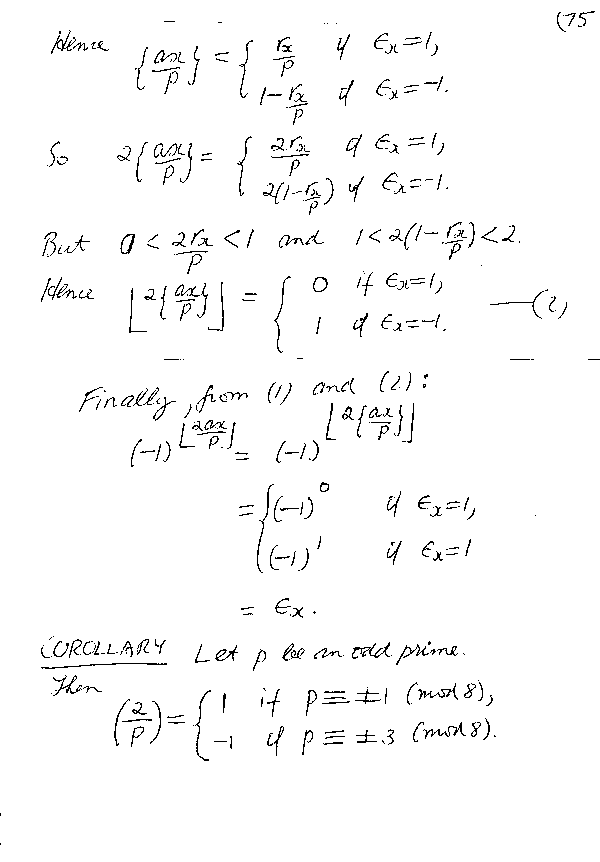 (75
Hence {ax/p} = { rx/p if ϵx=1,
1-rx/p if ϵx=-1.
So 2{ax/p} = { 2rx/p if ϵx=1,
2(1-rx/p) if ϵx=-1.
But 0 < 2rx/p < 1 and 1<2(1-rx/p)<2.
Hence ⌊2{ax/p}⌋ = { 0 if ϵx=1,
1 if ϵx=-1. —(2)
Finally, from (1) and (2):
(-1)^⌊2ax/p⌋ = (-1)^⌊2{ax/p}⌋
= { (-1)^0 if ϵx=1,
(-1)^1 if ϵx=1
= ϵx.
COROLLARY Let p be an odd prime.
Then
(2/p) = { 1 if p ≡ ±1 (mod 8),
-1 if p ≡ ±3 (mod 8).